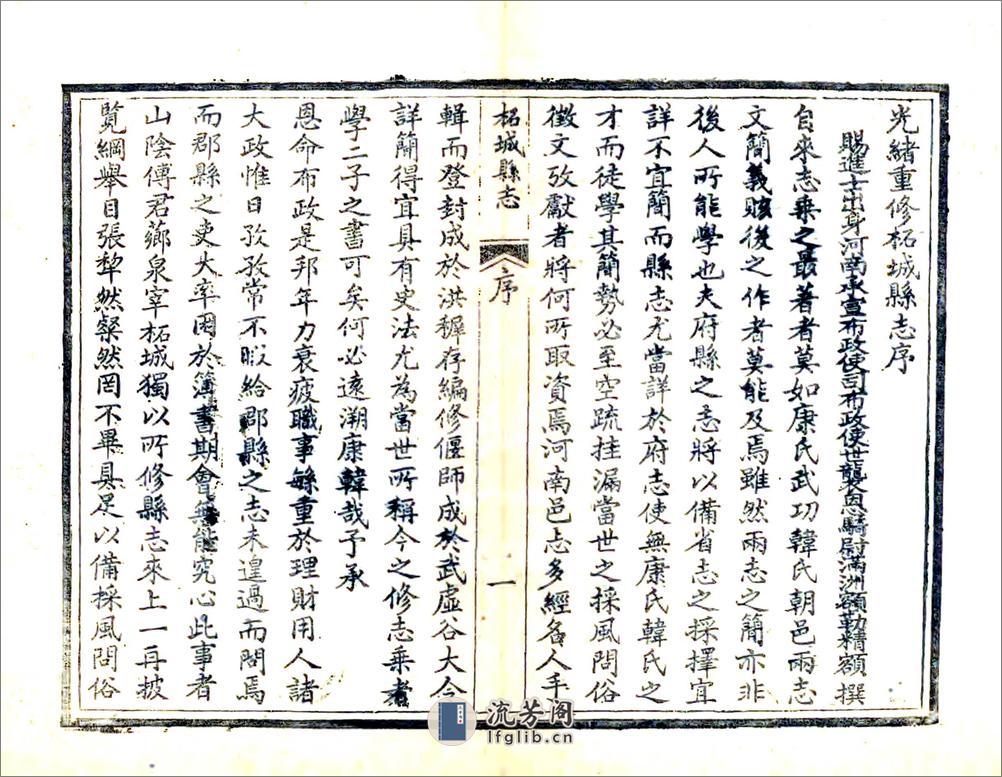 光緒重修柘城縣志序
賜進士出身河南承宣布政使司布政使世襲恩騎尉滿洲額勒精額撰
自來志乘之最著者莫如康氏武功韓氏朝邑兩志
文簡義賅後之作者莫能及焉雖然兩志之簡亦非
後人所能學也夫府縣之志將以備省志之採擇宜
詳不宜簡而縣志尤當詳於府志使無康氏韓氏之
才而徒學其簡勢必至空疏挂漏當世之採風問俗
徵文攷獻者將何所取資焉河南邑志多經名人手
柘城縣志
序
一
輯而登封成於洪穉存編修偃師成於武虛谷大令
詳簡得宜具有史法尤為當世所稱今之修志乘者
學二子之書可矣何必遠溯康韓哉予承
恩命布政是邦年力衰疲職事繇重於理財用人諸
大政惟日孜孜常不暇給郡縣之志未遑過而問焉
而郡縣之吏大率困於簿書期會無能究心此事者
山陰傅君薌泉宰柘城獨以所修縣志來上一再披
覽綱舉目張犂然粲然罔不畢具足以備採風問俗
流芳阁
lfglib.cn